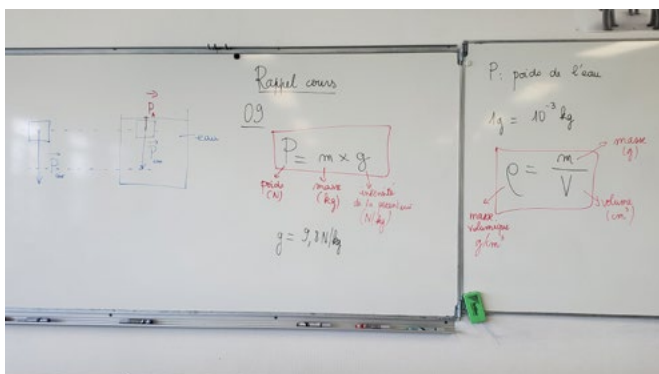 Rappel cours
09
P = m x g
poids
(N)
masse
(kg)
intensité
de la pesanteur
(N/kg)
g = 9,8 N/kg
P
P
P
eau
P : poids de l'eau
1g = 10⁻³ kg
ρ = m / V
masse
(g)
volume
(cm³)
masse
volumique
g/cm³